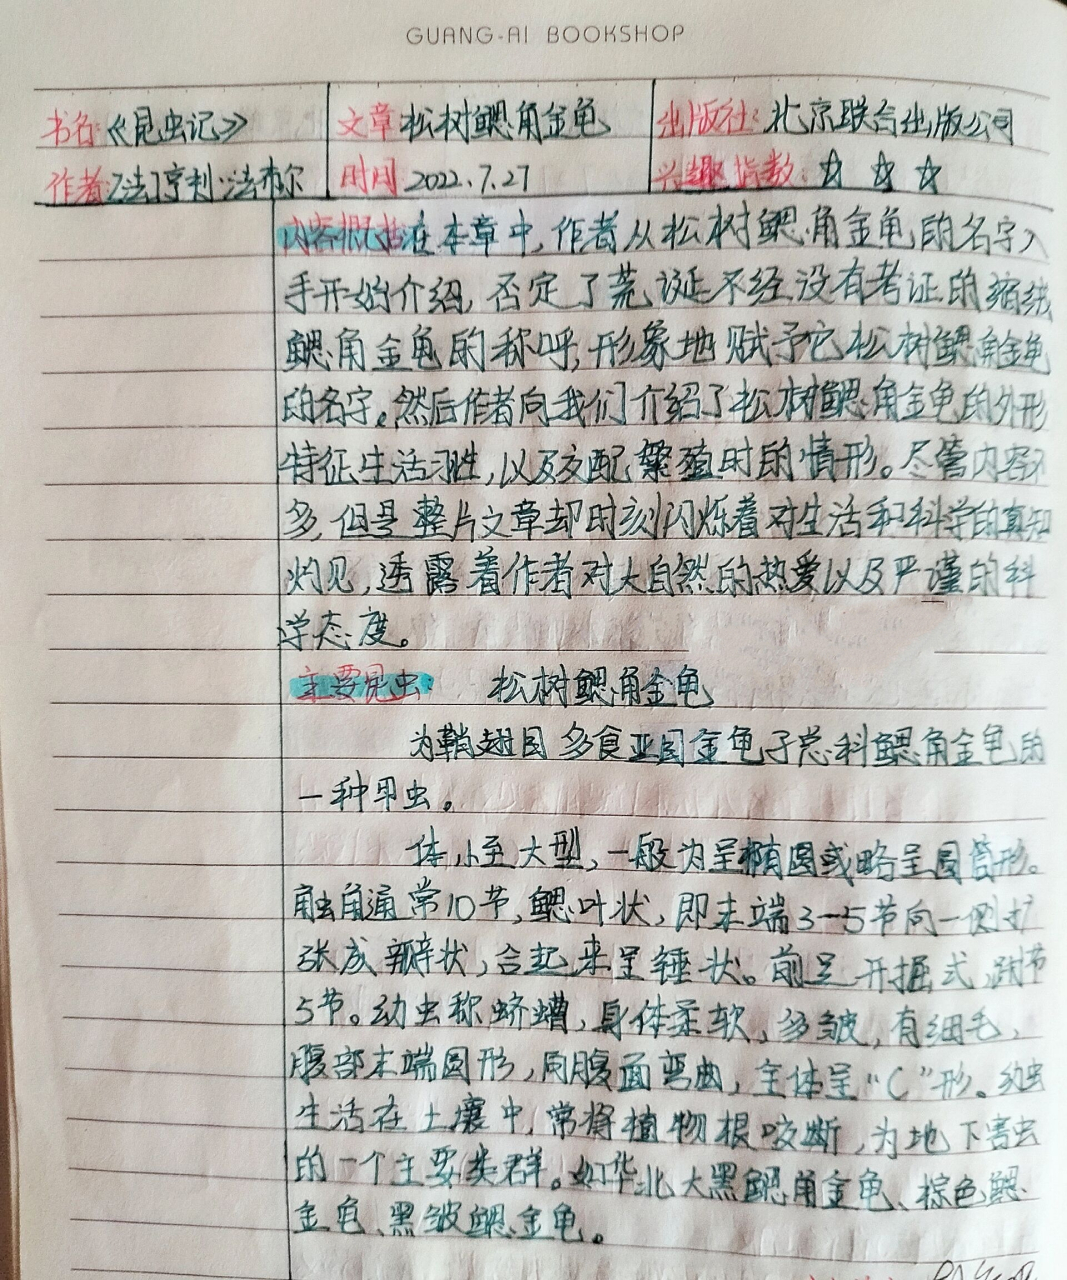 GUANG-AI BOOKSHOP
书名:《昆虫记》 文章:松树鳃角金龟 出版社:北京联合出版公司
作者:[法]亨利·法布尔 时间:2022.7.27 兴趣指数:☆ ☆ ☆
内容概括:在本章中,作者从松树鳃角金龟的名字入
手开始介绍,否定了荒诞不经没有考证的缩绒
鳃角金龟的称呼,形象地赋予它松树鳃角金龟
的名字。然后作者向我们介绍了松树鳃角金龟的外形
特征,生活习性,以及交配繁殖时的情形。尽管内容不
多,但是整片文章却时刻闪烁着对生活和科学的真知
灼见,透露着作者对大自然的热爱以及严谨的科
学态度。
主要昆虫: 松树鳃角金龟
为鞘翅目多食亚目金龟子总科鳃角金龟的
一种甲虫。
体小至大型,一般为呈椭圆或略呈圆筒形。
触角通常10节,鳃叶状,即末端3-5节向一侧扩
张成瓣状,合起来呈锤状。前足开掘式,跗节
5节。幼虫称蛴螬,身体柔软,多皱,有细毛,
腹部末端圆形,向腹面弯曲,全体呈“C”形。幼虫
生活在土壤中,常将植物根咬断,为地下害虫
的一个主要类群。如华北大黑鳃角金龟、棕色鳃
金龟、黑皱鳃金龟。